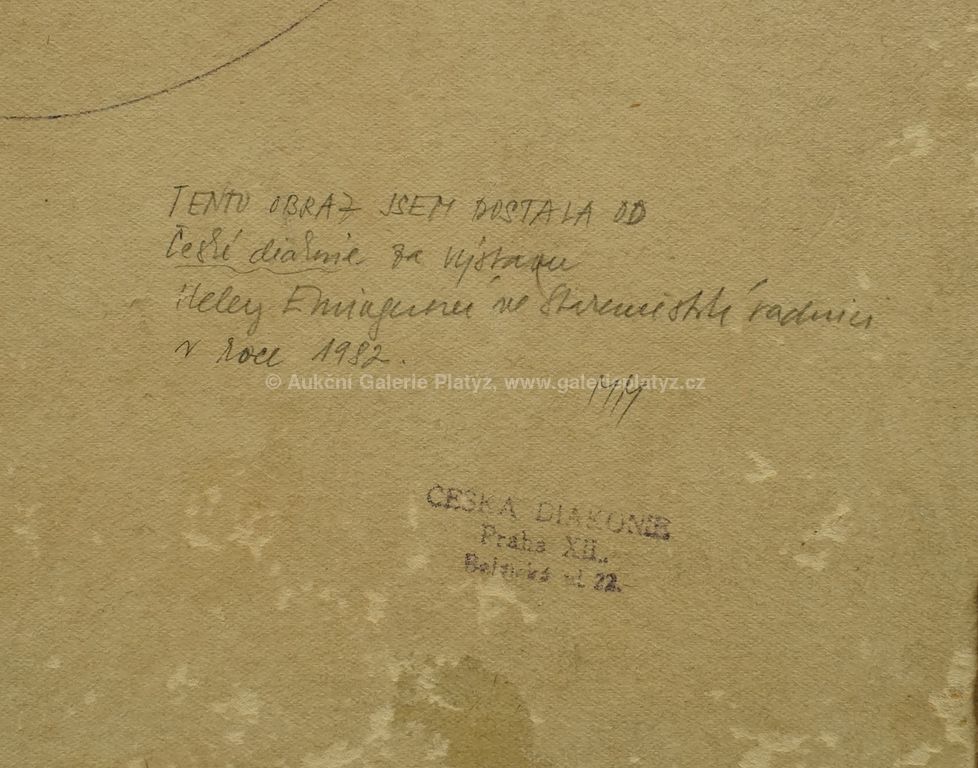 TENTO OBRAZ JSEM DOSTALA OD
České diakonie za výstavu
Heleny Emingerové ve Staroměstské radnici
v roce 1982.
© Aukční Galerie Platýz, www.galerieplatyz.cz
ČESKÁ DIAKONIE
Praha XII.,
Belgická ul. 22.